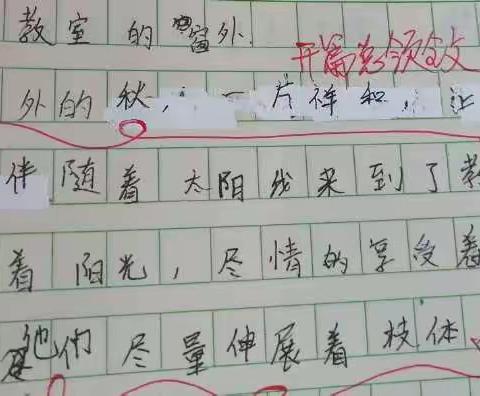 教室的窗外
开篇总领全文
外的秋，一片祥和，让
伴随着太阳线来到了教
着阳光，尽情的享受着
他们尽量伸展着枝体